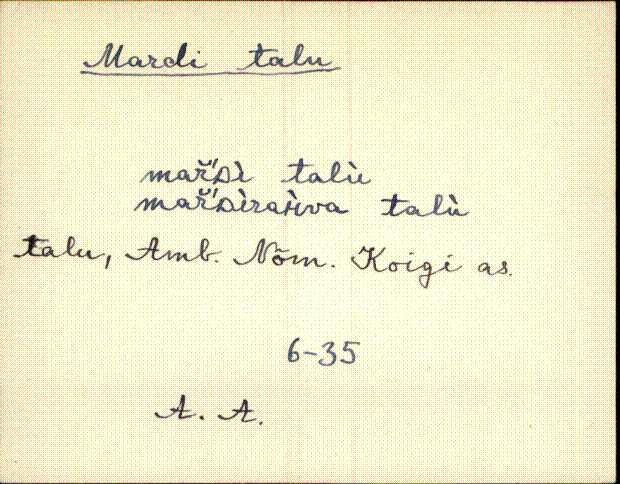 Mardi talu
mar̆'ᴅì talù
mar̆'ᴅìrah̀va talù
talu, Amb. Nõm. Koigi as.
6-35
A. A.